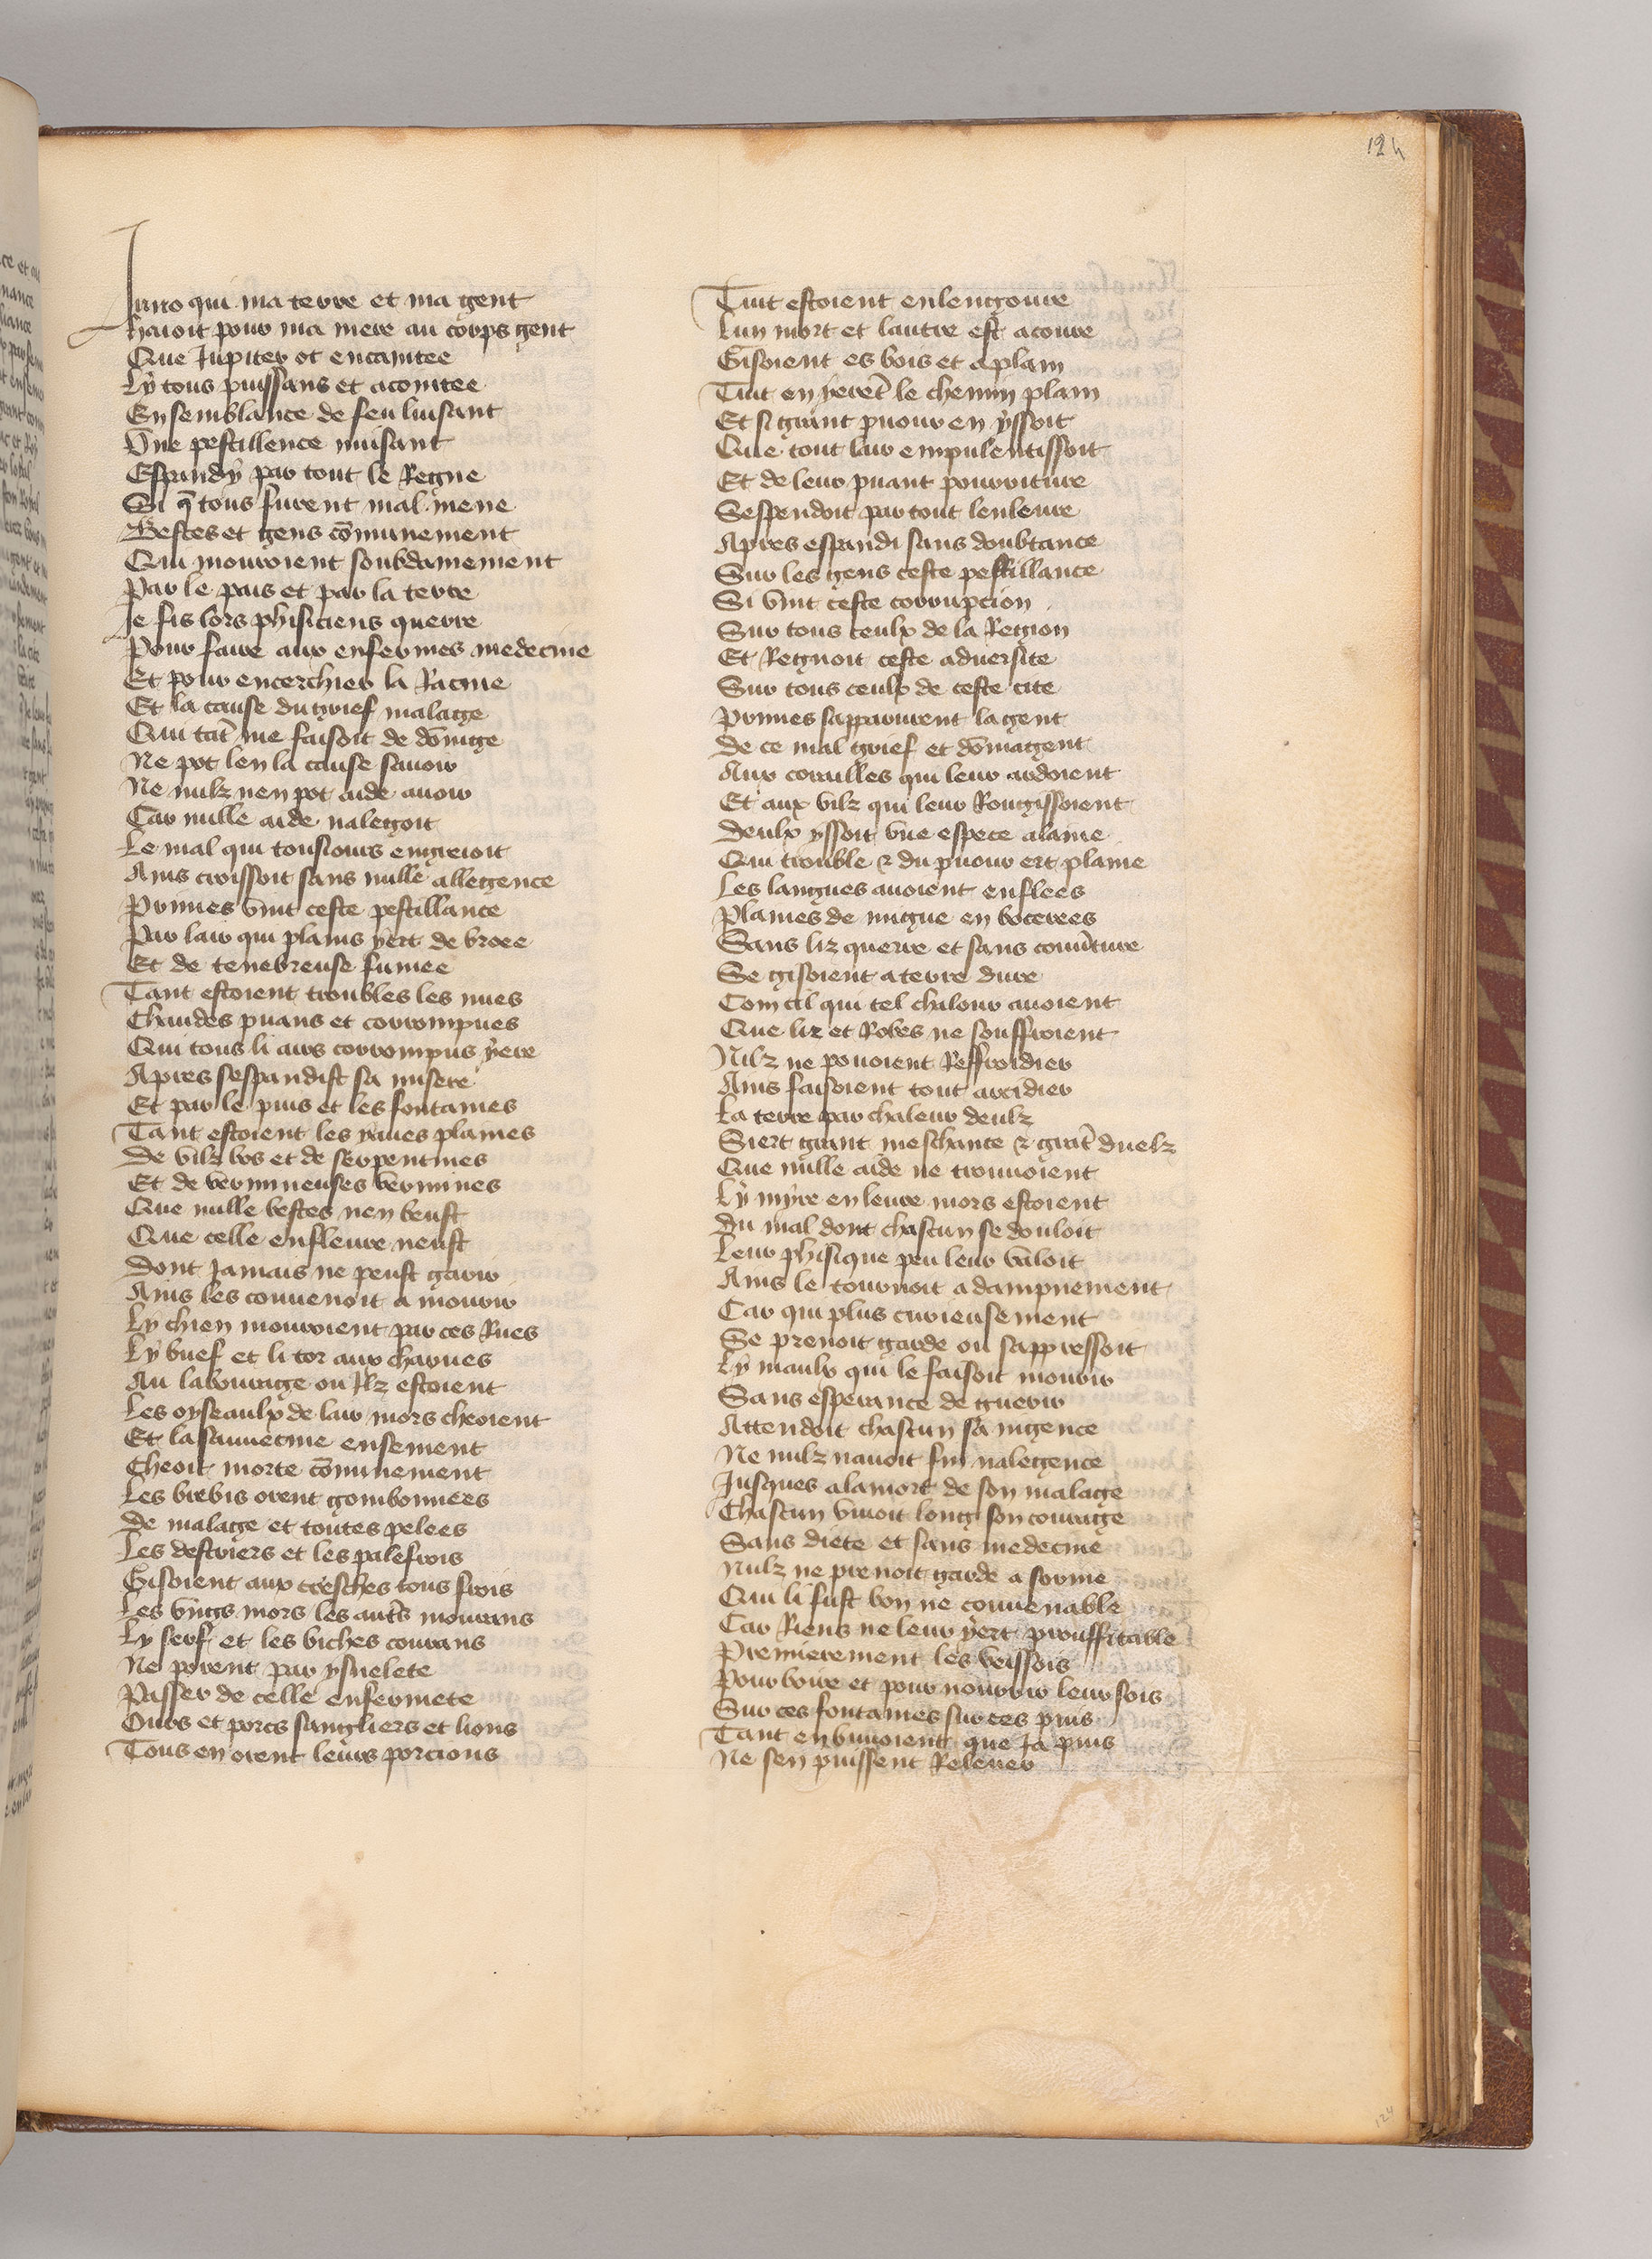 124
Juno qui ma terre et ma gent
Haioit pour ma mere au corps gent
Que Jupiter ot encaintee
Ly tous puissans et acointee
En semblance de feu luisant
Une pestillence nuisant
Espandy par tout le Regne
Si q̃ tous furent mal mene
Bestes et gens cõmunement
Qui mouroient soubdainement
Par le pais et par la terre
Je fis lors phisiciens querre
Pour faire aux enfermes medecine
Et pour encerchier la Racine
Et la cause du grief malage
Qui tãt me faisoit de dõmage
Ne pot len la cause savoir
Ne nulz nen pot aide avoir
Car nulle aide nalegoit
Le mal qui tousiours engreioit
Ains croissoit sans nulle allegence
Primes vint ceste pestillance
Par lair qui plains yert de broee
Et de tenebreuse fumee
Tant estoient troubles les nues
Chaudes puans et corrompues
Qui tous li airs corrompus yere
Apres sespandist sa misere
Et par le puis et les fontaines
Tant estoient les yaues plaines
De vilz bos et de serpentines
Et de vermineuses vermines
Que nulle bestes nen beust
Que celle enfleure neust
Dont jamais ne peust garir
Ains les convenoit a mourir
Ly chien mouroient par ces Rues
Ly buef et li tor aux charues
Au labourage ou Ilz estoient
Les oyseaulx de lair mors cheoient
Et la sauvecine ensement
Cheoit morte cõmunement
Les brebis orent gombonnees
De malage et toutes pelees
Les destriers et les palefrois
Gisoient aux cresches tous frois
Les ungs mors les autrs mourans
Ly serf et les biches courans
Ne porent par ysnelete
Passer de celle enfermete
Ours et porcs sangliers et lions
Tous en orent leurs porcions
Tuit estoient en lengoure
Lun mort et lautre est acoure
Gisoient es bois et a plain
Tuit en yerẽt le chemin plain
Et si grant puour en yssoit
Que tout lair empulentissoit
Et de leur puant pourriture
Sespendoit par tout lenleure
Apres espandi sans doubtance
Sur les gens ceste pestillance
Si vint ceste corrupcion
Sur tous ceulx de la Region
Et Regnoit ceste adversite
Sur tous ceulx de ceste cite
Primes sapparurent la gent
De ce mal grief et dõmagent
Aux corailles qui leur ardoient
Et aux vilz qui leur Rougissoient
Deulx yssoit une espece alaine
Qui trouble & du puour ert plaine
Les langues avoient enflees
Plaines de nugue en bocerees
Sans liz querre et sans couvrture
Se gisoient a terre dure
Com cil qui tel chalour avoient
Que liz et Robes ne souffroient
Nilz ne pouoient Reffroidier
Ains faisoient tout arcidier
La terre par chaleur deulz
Siert grant meschance & grãt duelz
Que nulle aide ne trouvoient
Ly myre en leure mors estoient
Du mal dont chascun se douloit
Leur phisique peu leur valoit
Ains le tournoit a dampnement
Car qui plus curieusement
Se prenoit garde ou sappressoit
Ly maulx qui le faisoit mourir
Sans esperance de guerir
Attendoit chascun sa ingence
Ne nulz navoit fin nalegence
Jusques a la mort de son malage
Chascun vivoit long son courage
Sans diete et sans medecine
Nulz ne prenoit garde a sorme
Qui li fust bon ne convenable
Car Riens ne leur yert prouffitable
Premierement les veissois
Pour boire et pour nourrir leur sois
Sur ces fontaines sur ces puis
Tant en buvoient que Ja puis
Ne sen puissent Relever
124